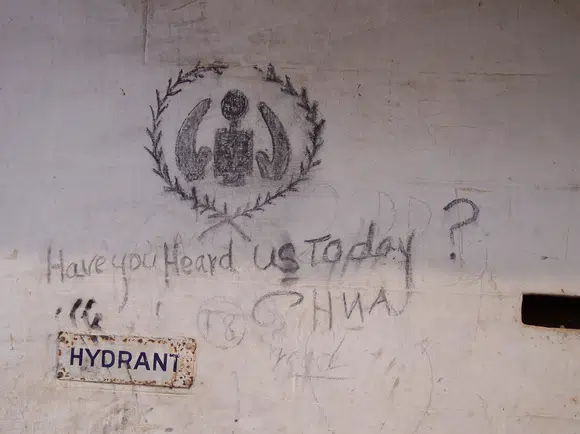 Have you Heard us Today?
HYDRANT